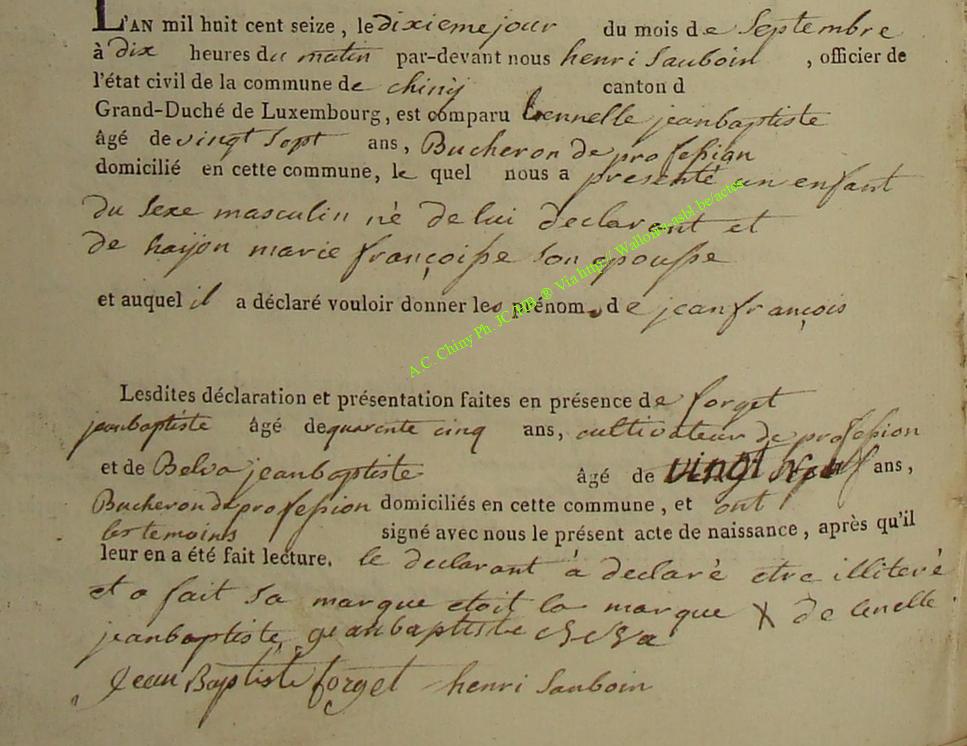 L'AN mil huit cent seize, le dixieme jour du mois de Septembre
à dix heures du matin par-devant nous henri Sauboin , officier de
l'état civil de la commune de chiny canton d
Grand-Duché de Luxembourg, est comparu Lennelle jeanbaptiste
âgé de vingt sept ans, Bucheron de profession
domicilié en cette commune, le quel nous a présenté un enfant
du sexe masculin né de lui declarant et
de hayon marie françoisse son epousse
et auquel il a déclaré vouloir donner les prénom. de jean françois
Lesdites déclaration et présentation faites en présence de forget
jeanbaptiste âgé de quarente cinq ans, cultivateur de profession
et de Belva jeanbaptiste âgé de vingt neuf ans,
Bucheron de profession domiciliés en cette commune, et ont
les temoins signé avec nous le présent acte de naissance, après qu'il
leur en a été fait lecture. le declarant à declaré etre illiteré
et a fait sa marque etoit la marque X de lenelle
jeanbaptiste geanbaptiste
Jean Baptiste forget henri Sauboin
A.C. Chiny Ph. JC ® Via http://Wallonia-asbl.be/actes